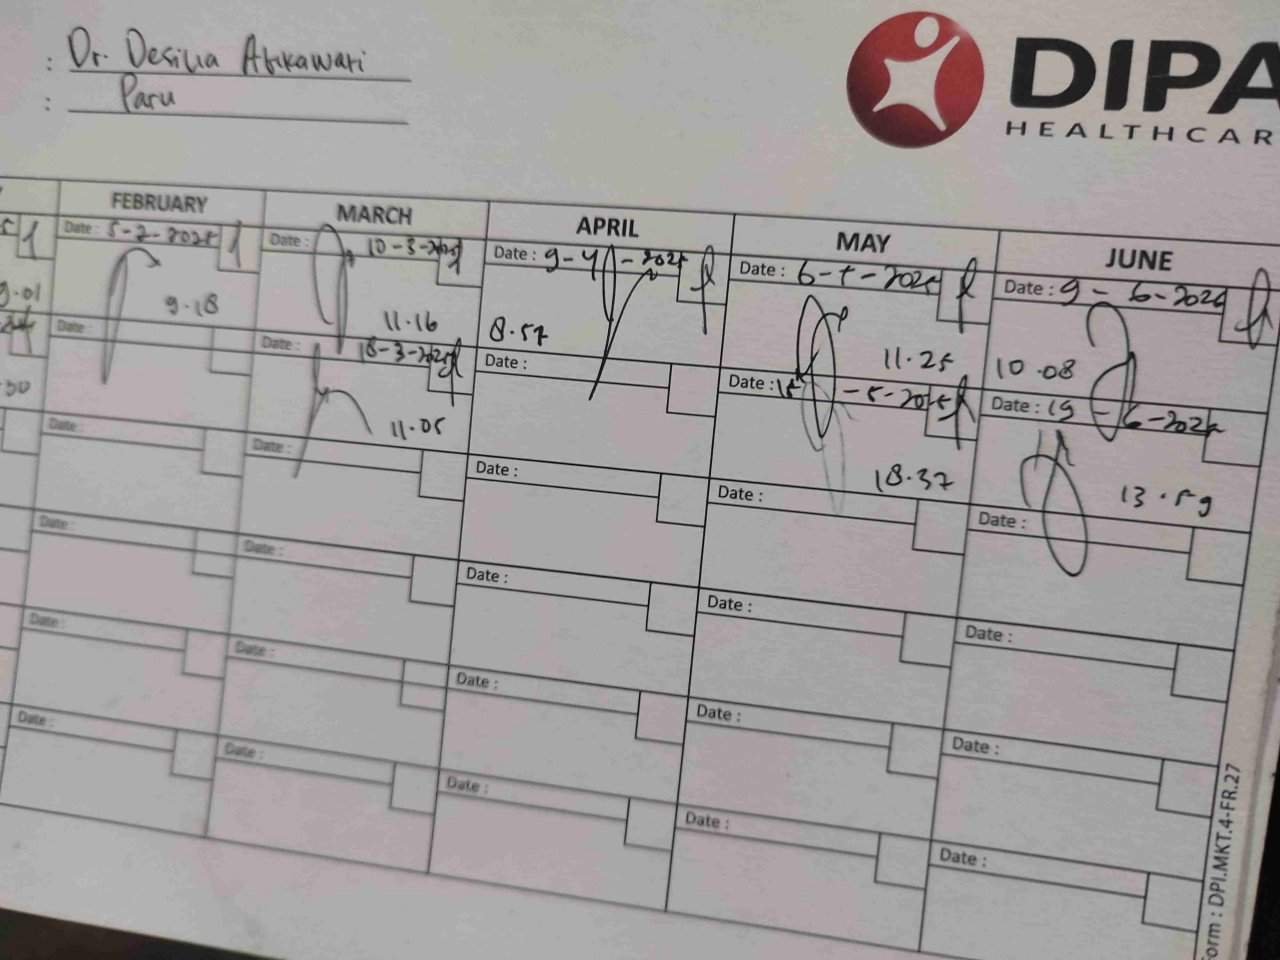 : Dr. Desilia Atikawati
: Paru
DIPA
HEALTHCAR
FEBRUARY MARCH APRIL MAY JUNE
Date : 5-2-2025 Date : 10-3-2025 Date : 9-4-2025 Date : 6-5-2025 Date : 9-6-2025
9.01 9.18 11.16 8.57 11.25 10.08
Date : Date : 18-3-2025 Date : Date : 15-5-2025 Date : 19-6-2025
11.05 18.37 13.59
Date : Date : Date : Date : Date :
Date : Date : Date : Date : Date :
Date : Date : Date : Date : Date :
Date : Date : Date : Date : Date :
Form : DPI.MKT.4-FR.27